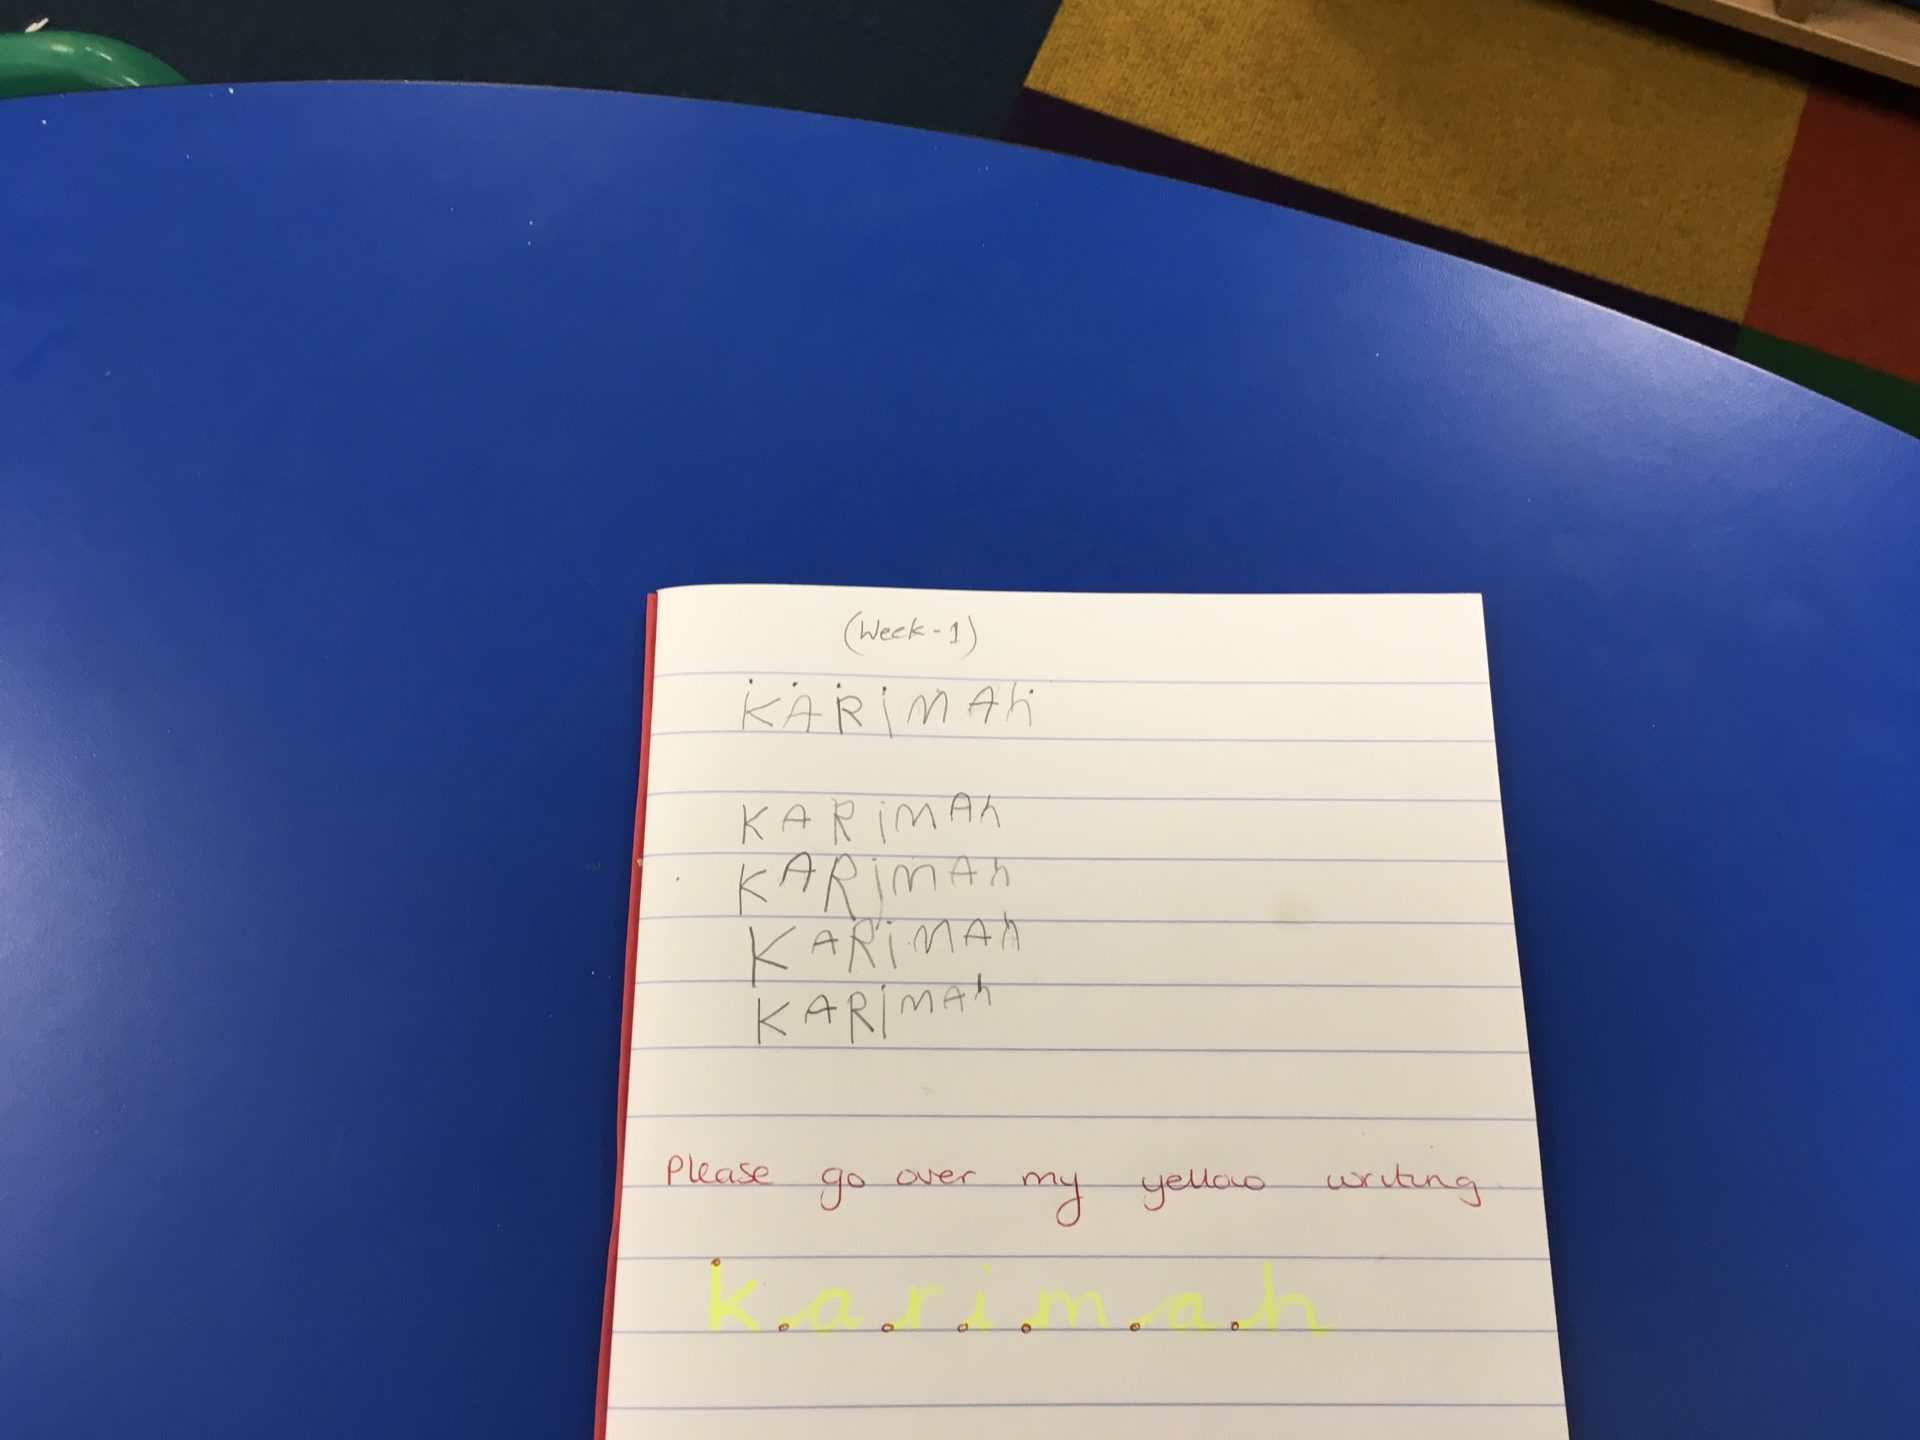 (Week-1)
KARiMAh
KARiMAh
KARiMAh
KARiMAh
KARiMAh
Please go over my yellow writing
k.a.r.i.m.a.h